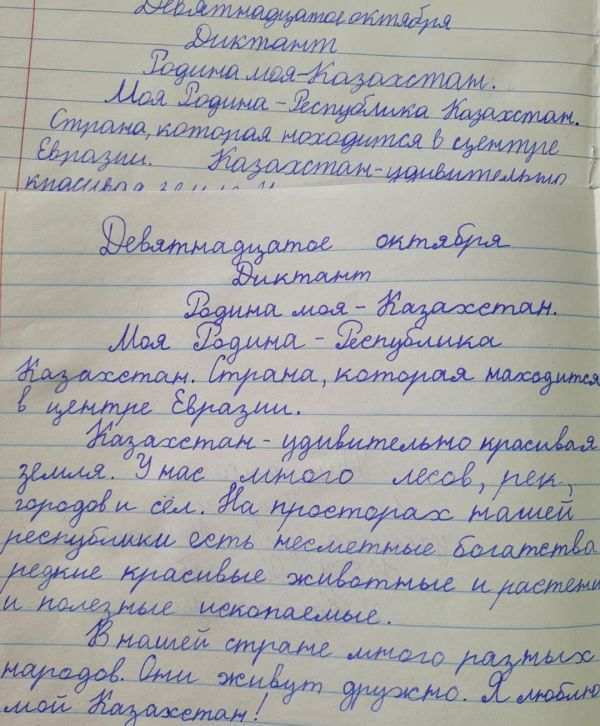 Девятнадцатое октября
Диктант
Родина моя-Казахстан.
Моя Родина-Республика Казахстан.
Страна, которая находится в сцентре
Евразии. Казахстан-удивительно
красивая земля. У
Девятнадцатое октября
Диктант
Родина моя - Казахстан.
Моя Родина - Республика
Казахстан. Страна, которая находится
в центре Евразии.
Казахстан - удивительно красивая
земля. У нас много лесов, рек,
городов и сёл. На просторах нашей
республики есть несметные богатства
редкие красивые животные и растени
и полезные ископаемые.
В нашей стране много разных
народов. Они живут дружно. Я люблю
мой Казахстан!